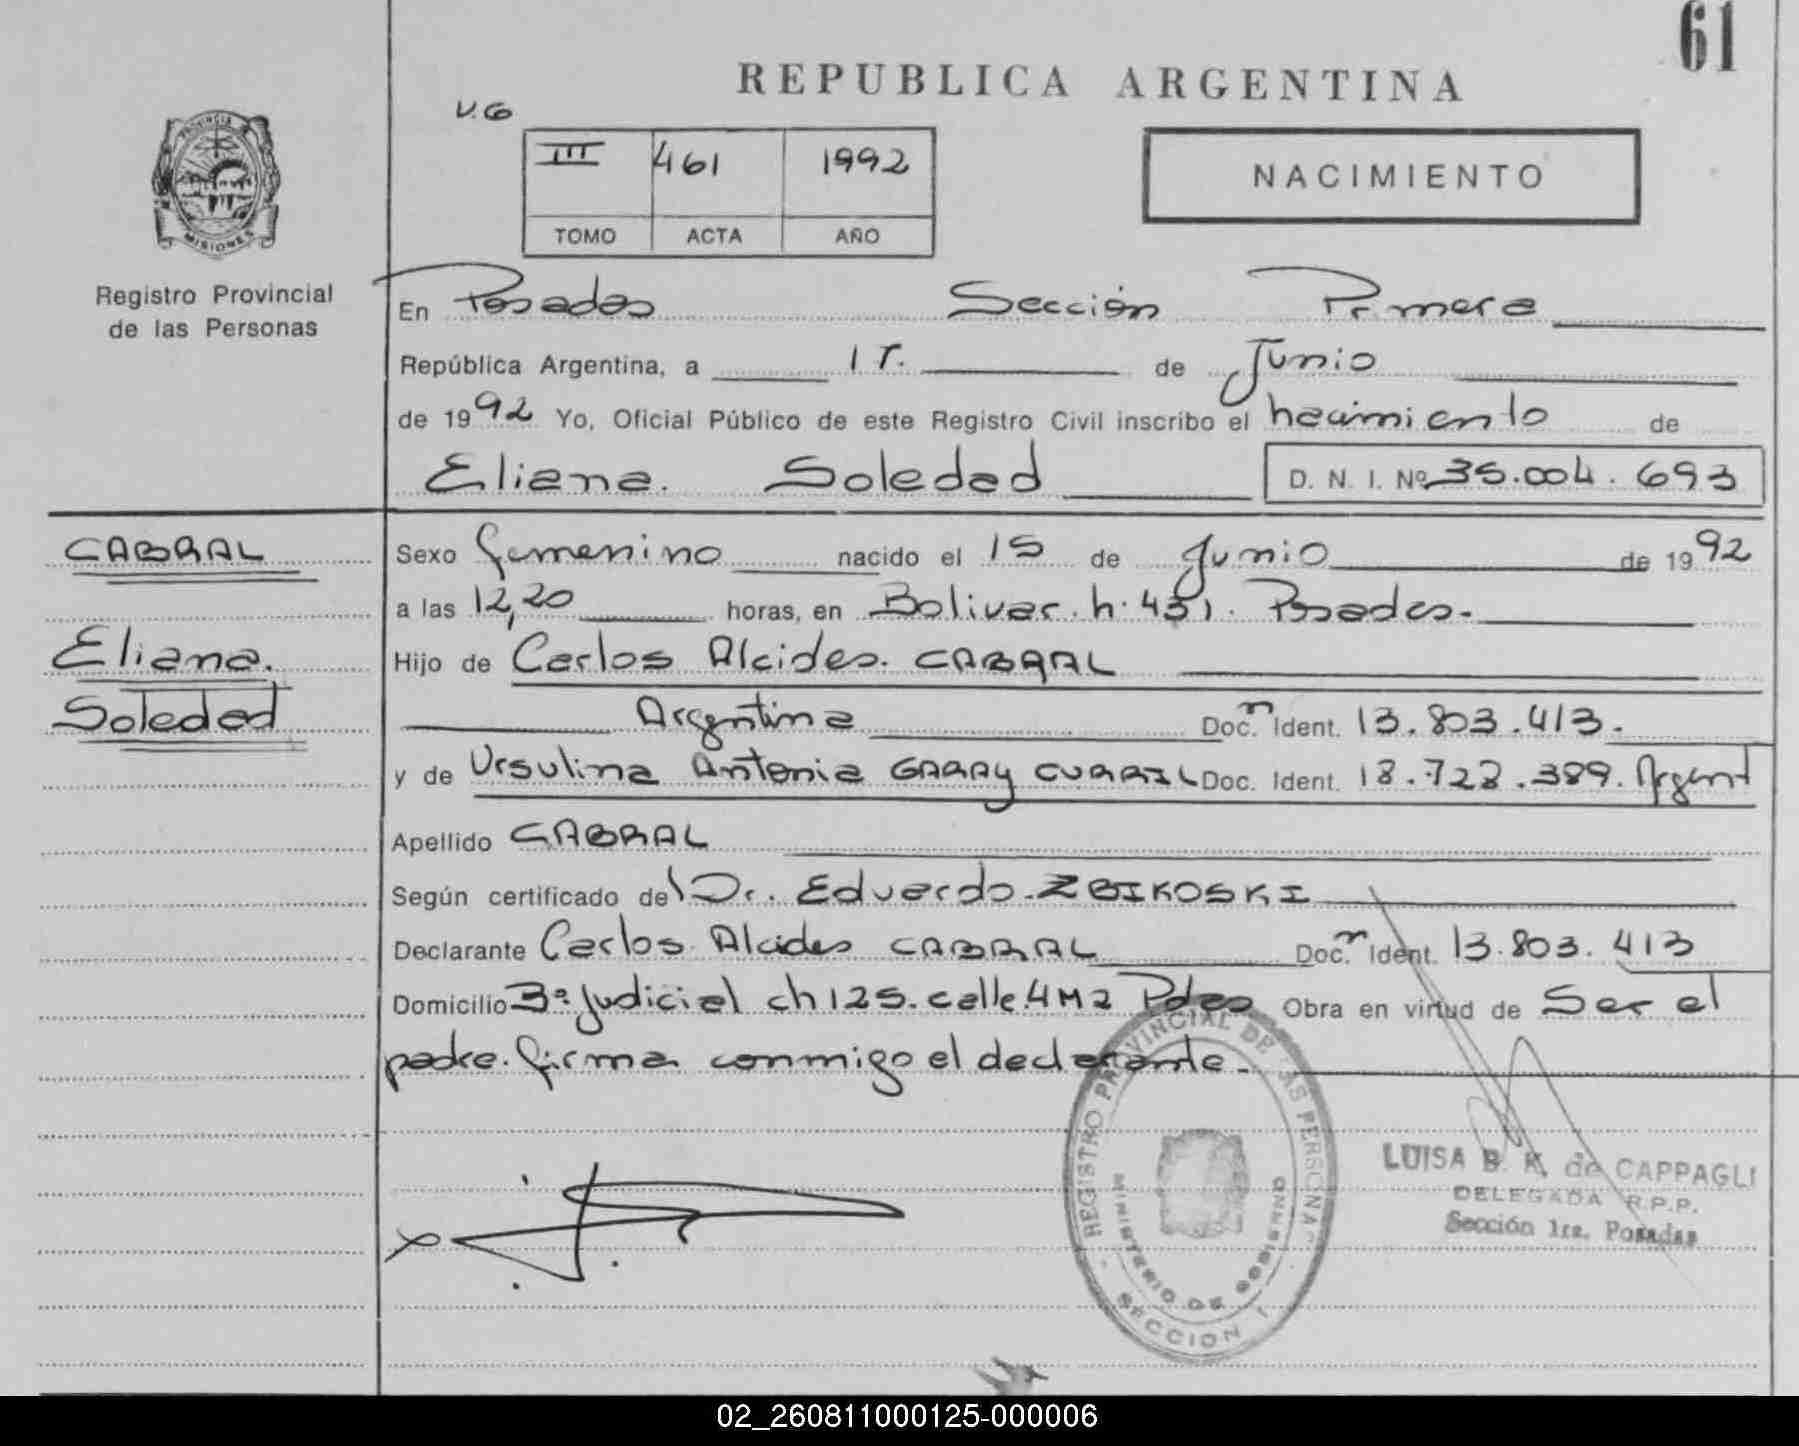 61
REPUBLICA ARGENTINA
V.G
III 461 1992
NACIMIENTO
TOMO ACTA AÑO
PROVINCIA
MISIONES
Registro Provincial
de las Personas
En Posadas Sección Primera
República Argentina, a 17. de Junio
de 1992 Yo, Oficial Público de este Registro Civil inscribo el nacimiento de
Eliana Soledad D. N. I. Nº 35.004.693
CABRAL
Eliana
Soledad
Sexo femenino nacido el 15 de Junio de 1992
a las 12,20 horas, en Bolivar. h. 451. Posadas.
Hijo de Carlos Alcides. CABRAL
Argentina Doc. Ident. 13.803.413.
y de Ursulina Antonia GARAY Doc. Ident. 18.728.389. Argent
Apellido CABRAL
Según certificado de Dr. Eduardo ZBIKOSKI
Declarante Carlos Alcides CABRAL Doc. Ident. 13.803.413
Domicilio Bº Judicial ch 125. calle 4 M2 Pdas Obra en virtud de Ser el
padre. firma conmigo el declarante.
REGISTRO PROVINCIAL DE LAS PERSONAS
MINISTERIO DE GOBIERNO
SECCION 1
LUISA B. K. de CAPPAGLI
DELEGADA R.P.P.
Sección 1ra. Posadas
02_260811000125-000006